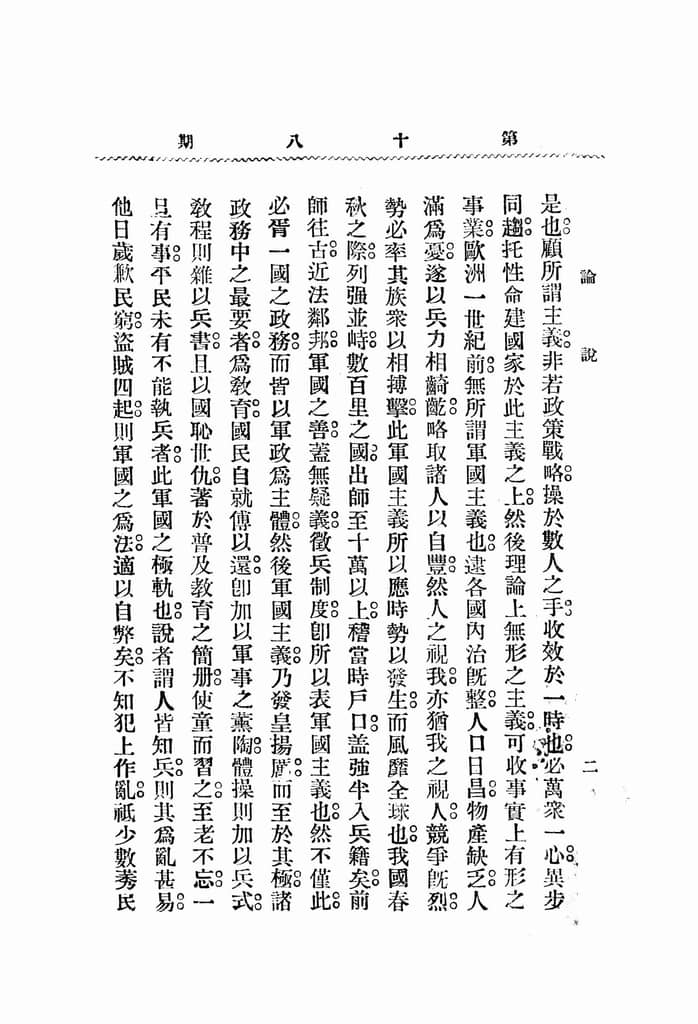 第十八期
論說
二
是也。顧所謂主義。非若政策戰略。操於數人之手。收效於一時也。必萬衆一心。異步
同趨。托性命建國家於此主義之上。然後理論上無形之主義。可收事實上有形之
事業。歐洲一世紀前。無所謂軍國主義也。逮各國內治旣整。人口日昌。物產缺乏。人
滿爲憂。遂以兵力相齮齕。略取諸人以自豐。然人之視我。亦猶我之視人。競爭旣烈。
勢必率其族衆以相搏擊。此軍國主義所以應時勢以發生。而風靡全球也。我國春
秋之際。列强並峙。數百里之國。出師至十萬以上。稽當時戶口。盖強半入兵籍矣。前
師往古。近法鄰邦。軍國之善。蓋無疑義。徵兵制度。卽所以表軍國主義也。然不僅此。
必胥一國之政務。而皆以軍政爲主體。然後軍國主義。乃發皇揚厲。而至於其極。諸
政務中之最要者。爲敎育。國民自就傅以還。卽加以軍事之薰陶。體操則加以兵式。
敎程則雜以兵書。且以國恥世仇。著於普及敎育之簡册。使童而習之。至老不忘。一
旦有事。平民未有不能執兵者。此軍國之極軌也。說者謂人皆知兵。則其爲亂甚易。
他日歲歉民窮。盜賊四起。則軍國之爲法。適以自弊矣。不知犯上作亂。祇少數莠民